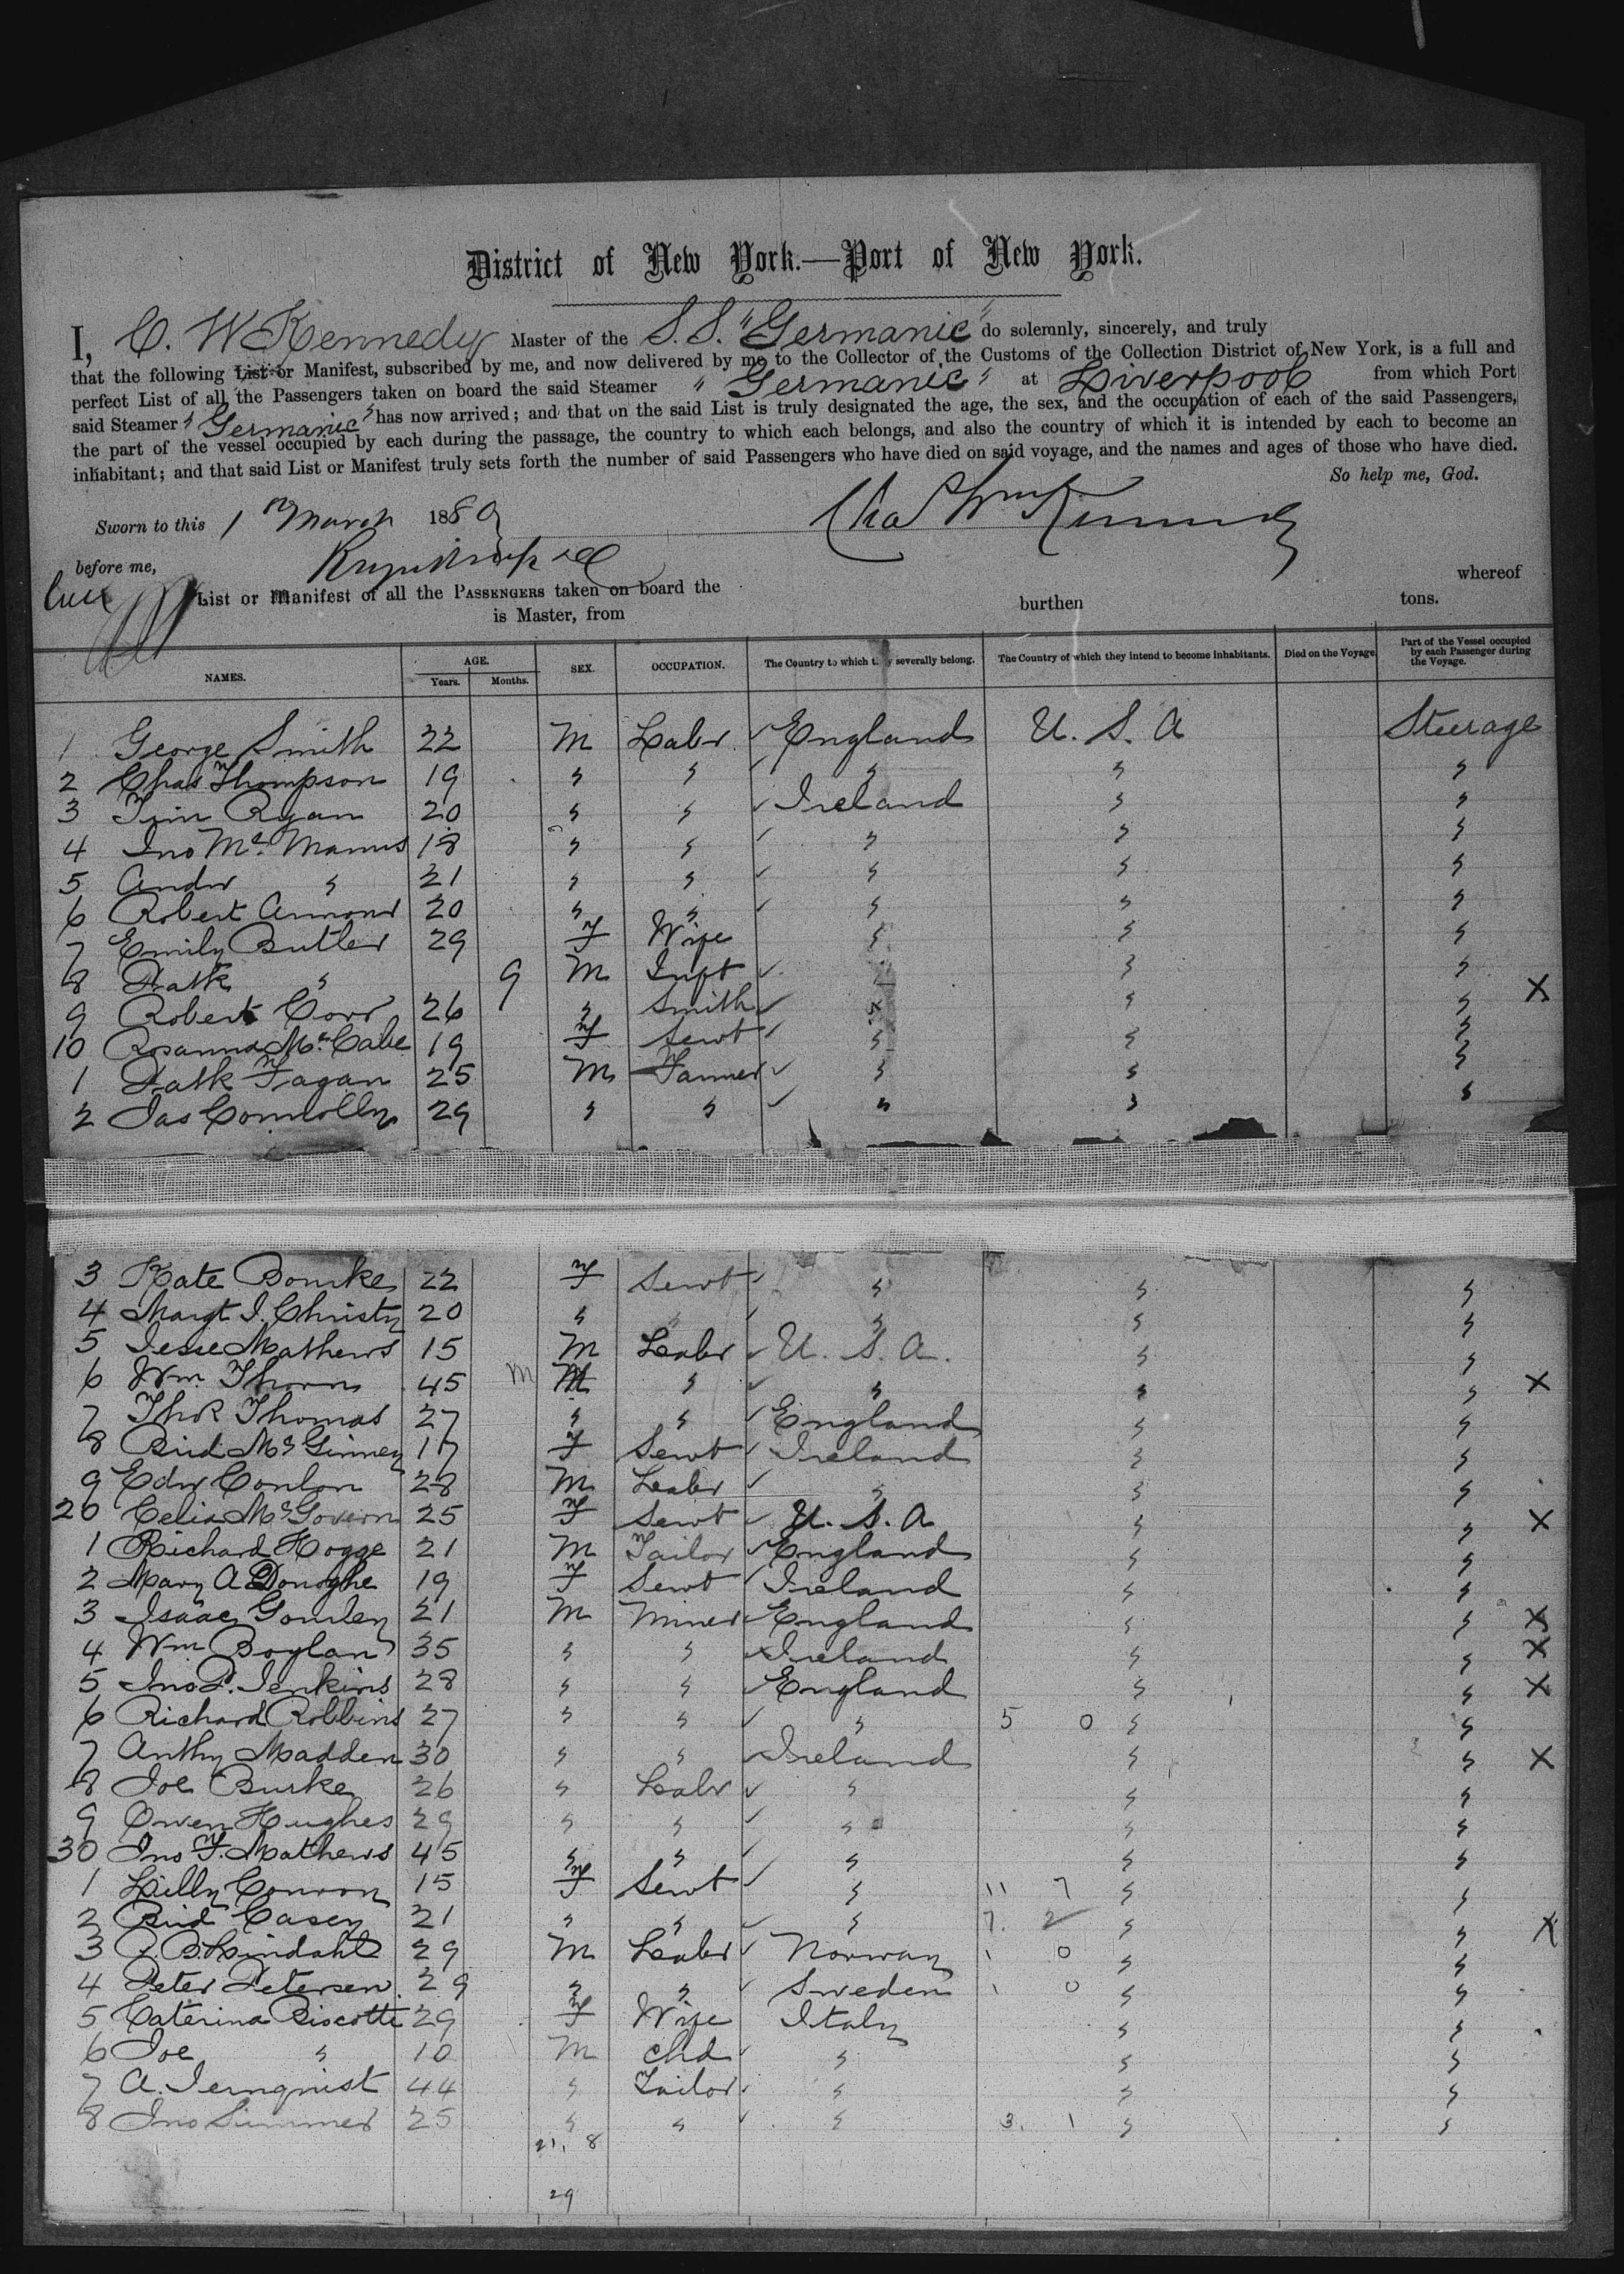 District of New York.—Port of New York.
I, C. W Kennedy Master of the S.S. "Germanic" do solemnly, sincerely, and truly
that the following List or Manifest, subscribed by me, and now delivered by me to the Collector of the Customs of the Collection District of New York, is a full and
perfect List of all the Passengers taken on board the said Steamer "Germanic" at Liverpool from which Port
said Steamer "Germanic" has now arrived; and that on the said List is truly designated the age, the sex, and the occupation of each of the said Passengers,
the part of the vessel occupied by each during the passage, the country to which each belongs, and also the country of which it is intended by each to become an
inhabitant; and that said List or Manifest truly sets forth the number of said Passengers who have died on said voyage, and the names and ages of those who have died.
So help me, God.
Sworn to this 1 March 1880 Chas Wm Kennedy
before me,
whereof
List or Manifest of all the PASSENGERS taken on board the burthen tons.
is Master, from
NAMES. AGE. Years. Months. SEX. OCCUPATION. The Country to which they severally belong. The Country of which they intend to become inhabitants. Died on the Voyage. Part of the Vessel occupied by each Passenger during the Voyage.
1 George Smith 22 M Labr England U. S. A Steerage
2 Chas Thompson 19 " " " " "
3 Tim Ryan 20 " " Ireland " "
4 Jno Mc Manus 18 " " " " "
5 Andw " 21 " " " " "
6 Robert Armond 20 " " " " "
7 Emily Butler 29 F Wife " " "
8 Patk " 9 M Inft " " "
9 Robert Corr 26 " Smith " " " X
10 Rosanna McCabe 19 F Servt " " "
1 Patk Fagan 25 M Farmer " " "
2 Jas Connolly 29 " " " " "
3 Kate Bourke 22 F Servt " " "
4 Margt J. Christy 20 " " " " "
5 Jesse Mathews 15 M Labr U. S. A. " "
6 Wm Thorn 45 M M " " " " X
7 Thos Thomas 27 " " England " "
8 Brid McGinney 17 F Servt Ireland " "
9 Edw Conlon 28 M Labr " " "
20 Celia McGovern 25 F Servt U. S. A " " X
1 Richard Hogge 21 M Tailor England " "
2 Mary A Donoghe 19 F Servt Ireland " "
3 Isaac Gomley 21 M Miner England " " X
4 Wm Boylan 35 " " Ireland " " X
5 Jno P. Jenkins 28 " " England " " X
6 Richard Robbins 27 " " " 5 0 " "
7 Anthy Madden 30 " " Ireland " " X
8 Joe Burke 26 " Labr " " "
9 Owen Hughes 29 " " " " "
30 Jno F. Mathews 45 " " " " "
1 Lilly Conron 15 F Servt " 11 7 " "
2 Brid Casey 21 " " " 7. 2 " " X
3 P. B. Lindahl 29 M Labr Norway 1 0 " "
4 Peter Petersen 29 " " Sweden 1 0 " "
5 Caterina Biscotti 29 F Wife Italy " "
6 Joe " 10 M Chd " " "
7 A. Jernquist 44 " Tailor " " "
8 Jno Summer 25 " " " 3. 1 " "
21, 8
29